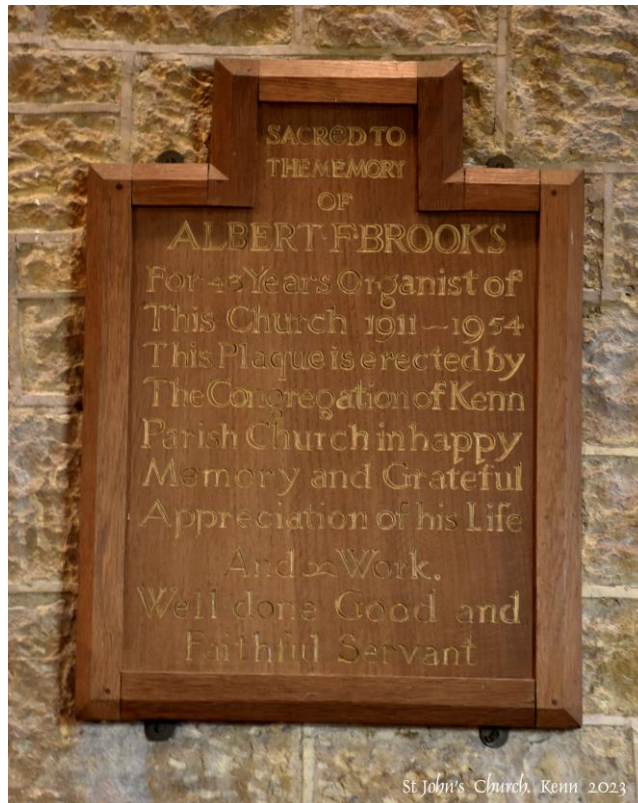 SACRED TO
THE MEMORY
OF
ALBERT·F·BROOKS
For 43 Years Organist of
This Church 1911~1954
This Plaque is erected by
The Congregation of Kenn
Parish Church in happy
Memory and Grateful
Appreciation of his Life
And Work.
Well done Good and
Faithful Servant
St John's Church, Kenn 2023